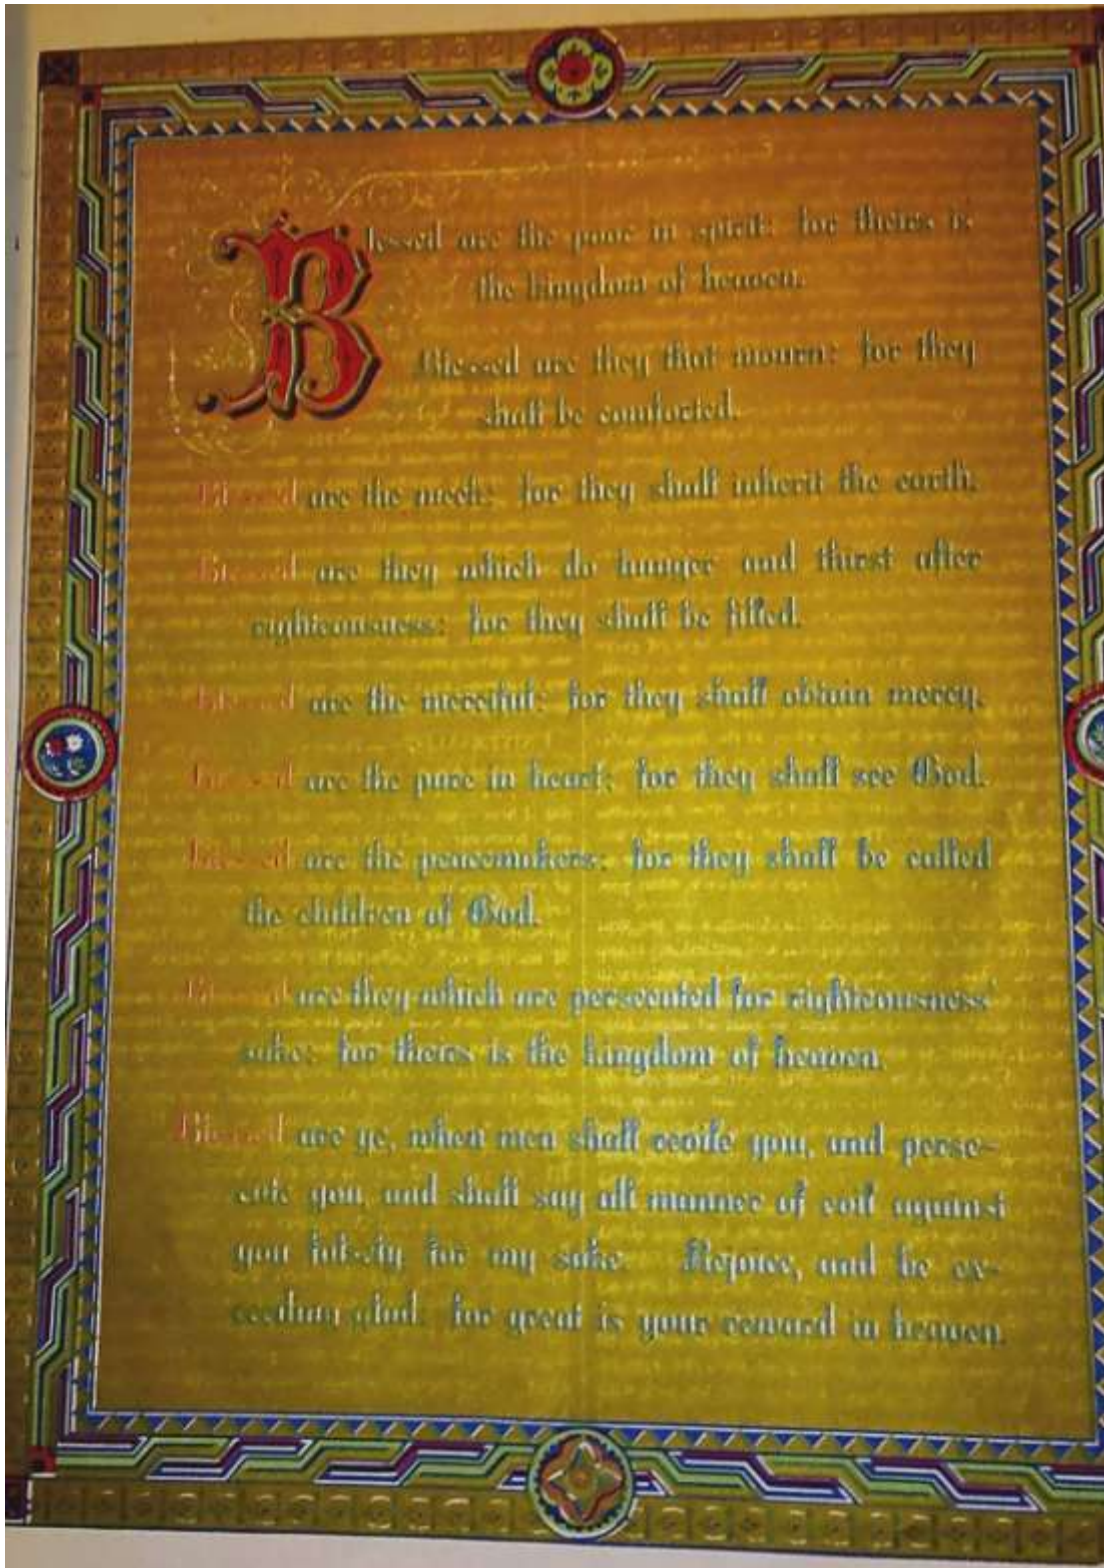 Blessed are the poor in spirit: for theirs is
the kingdom of heaven.
Blessed are they that mourn: for they
shall be comforted.
Blessed are the meek: for they shall inherit the earth.
Blessed are they which do hunger and thirst after
righteousness: for they shall be filled.
Blessed are the merciful: for they shall obtain mercy.
Blessed are the pure in heart: for they shall see God.
Blessed are the peacemakers: for they shall be called
the children of God.
Blessed are they which are persecuted for righteousness'
sake: for theirs is the kingdom of heaven.
Blessed are ye, when men shall revile you, and perse-
cute you, and shall say all manner of evil against
you falsely for my sake. Rejoice, and be ex-
ceeding glad: for great is your reward in heaven.